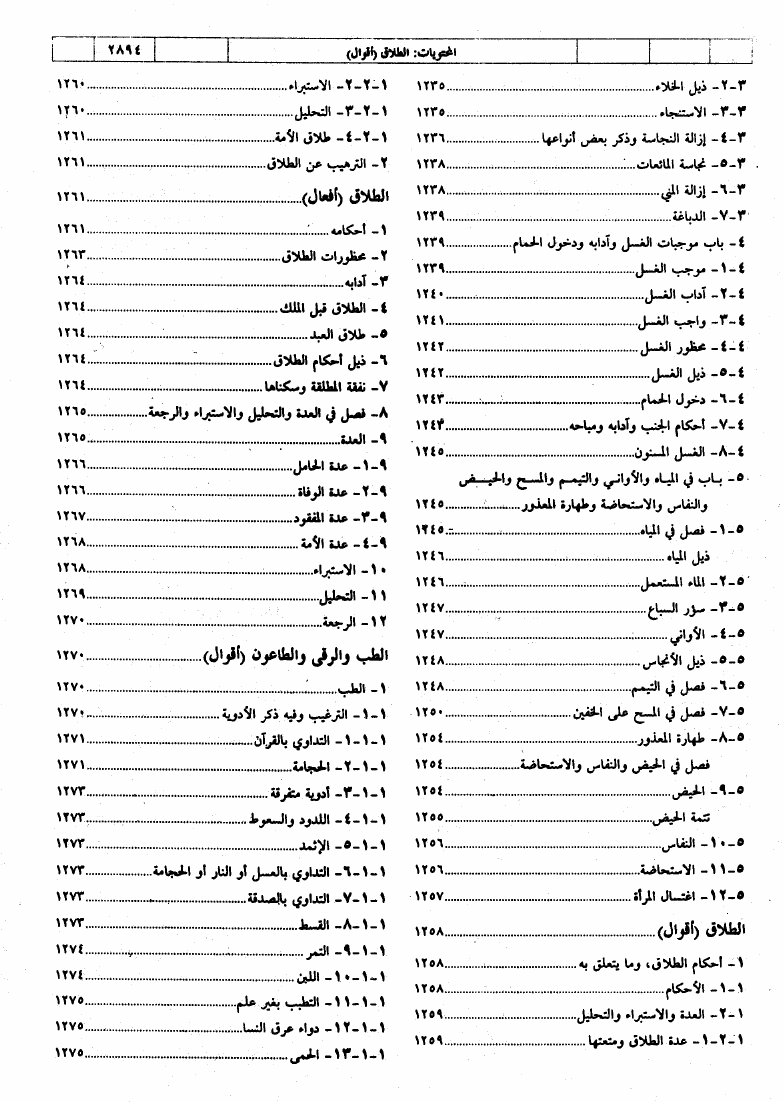 المحتويات: الطلاق (أقوال) ٢٨٩٤
٣-٢- ذيل الخلاء ١٢٣٥
٣-٣- الاستنجاء ١٢٣٥
٣-٤- إزالة النجاسة وذكر بعض أنواعها ١٢٣٦
٣-٥- نجاسة المائعات ١٢٣٨
٣-٦- إزالة المني ١٢٣٨
٣-٧- الدباغة ١٢٣٩
٤- باب موجبات الغسل وآدابه ودخول الحمام ١٢٣٩
٤-١- موجب الغسل ١٢٣٩
٤-٢- آداب الغسل ١٢٤٠
٤-٣- واجب الغسل ١٢٤١
٤-٤- محظور الغسل ١٢٤٢
٤-٥- ذيل الغسل ١٢٤٢
٤-٦- دخول الحمام ١٢٤٣
٤-٧- أحكام الجنب وآدابه ومباحه ١٢٤٤
٤-٨- الغسل المسنون ١٢٤٥
٥- باب في المياه والأواني والتيمم والمسح والحيض
والنفاس والاستحاضة وطهارة المعذور ١٢٤٥
٥-١- فصل في المياه ١٢٤٥
ذيل المياه ١٢٤٦
٥-٢- الماء المستعمل ١٢٤٦
٥-٣- سؤر السباع ١٢٤٧
٥-٤- الأواني ١٢٤٧
٥-٥- ذيل الأنجاس ١٢٤٨
٥-٦- فصل في التيمم ١٢٤٨
٥-٧- فصل في المسح على الخفين ١٢٥٠
٥-٨- طهارة المعذور ١٢٥٤
فصل في الحيض والنفاس والاستحاضة ١٢٥٤
٥-٩- الحيض ١٢٥٤
تتمة الحيض ١٢٥٥
٥-١٠- النفاس ١٢٥٦
٥-١١- الاستحاضة ١٢٥٦
٥-١٢- اغتسال المرأة ١٢٥٧
الطلاق (أقوال) ١٢٥٨
١- أحكام الطلاق، وما يتعلق به ١٢٥٨
١-١- الأحكام ١٢٥٨
١-٢- العدة والاستبراء والتحليل ١٢٥٩
١-٢-١- عدة الطلاق ومتعتها ١٢٥٩
١-٢-٢- الاستبراء ١٢٦٠
١-٢-٣- التحليل ١٢٦٠
١-٢-٤- طلاق الأمة ١٢٦١
٢- الترهيب عن الطلاق ١٢٦١
الطلاق (أفعال) ١٢٦١
١- أحكامه ١٢٦١
٢- محظورات الطلاق ١٢٦٣
٣- آدابه ١٢٦٤
٤- الطلاق قبل الملك ١٢٦٤
٥- طلاق العبد ١٢٦٤
٦- ذيل أحكام الطلاق ١٢٦٤
٧- نفقة المطلقة وسكناها ١٢٦٤
٨- فصل في العدة والتحليل والاستبراء والرجعة ١٢٦٥
٩- العدة ١٢٦٥
٩-١- عدة الحامل ١٢٦٦
٩-٢- عدة الوفاة ١٢٦٦
٩-٣- عدة المفقود ١٢٦٧
٩-٤- عدة الأمة ١٢٦٨
١٠- الاستبراء ١٢٦٨
١١- التحليل ١٢٦٩
١٢- الرجعة ١٢٧٠
الطب والرقى والطاعون (أقوال) ١٢٧٠
١- الطب ١٢٧٠
١-١- الترغيب وفيه ذكر الأدوية ١٢٧٠
١-١-١- التداوي بالقرآن ١٢٧١
١-١-٢- الحجامة ١٢٧١
١-١-٣- أدوية متفرقة ١٢٧٣
١-١-٤- اللدود والسعوط ١٢٧٣
١-١-٥- الإثمد ١٢٧٣
١-١-٦- التداوي بالعسل أو النار أو الحجامة ١٢٧٣
١-١-٧- التداوي بالصدقة ١٢٧٣
١-١-٨- القسط ١٢٧٣
١-١-٩- التمر ١٢٧٤
١-١-١٠- اللبن ١٢٧٤
١-١-١١- التطبب بغير علم ١٢٧٥
١-١-١٢- دواء عرق النسا ١٢٧٥
١-١-١٣- الحمى ١٢٧٥